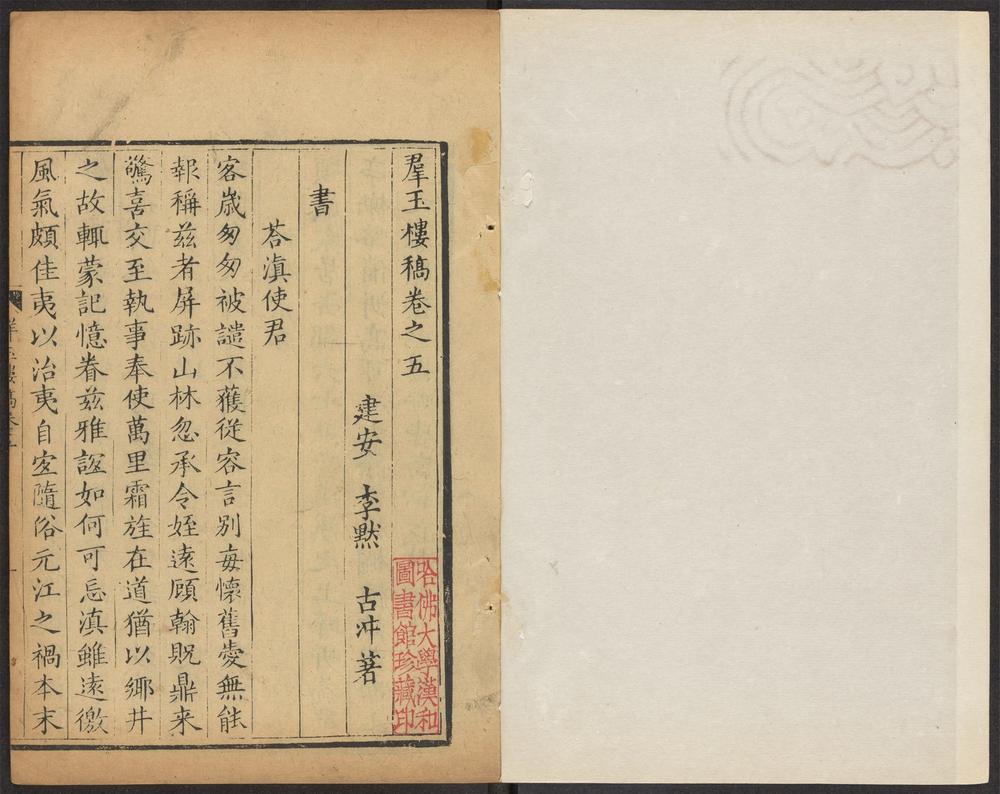 羣玉樓稿卷之五
建安 李默 古冲著
書
荅滇使君
客歲匆匆被譴不獲從容言別每懷舊愛無能
報稱茲者屏跡山林忽承令姪遠顧翰貺鼎来
驚喜交至執事奉使萬里霜旌在道猶以鄉井
之故輒蒙記憶眷茲雅誼如何可忘滇雖遠徼
風氣頗佳夷以治夷自宜隨俗元江之禍本末
哈佛大學漢和
圖書館珍藏印